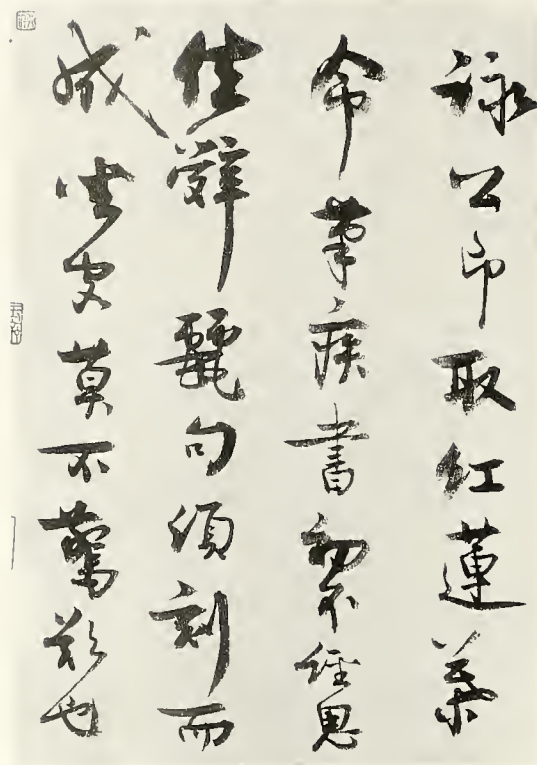 詠公即取紅蓮葉
命筆疾書初不經思
佳辭麗句須刻而
成坐客莫不驚歎也